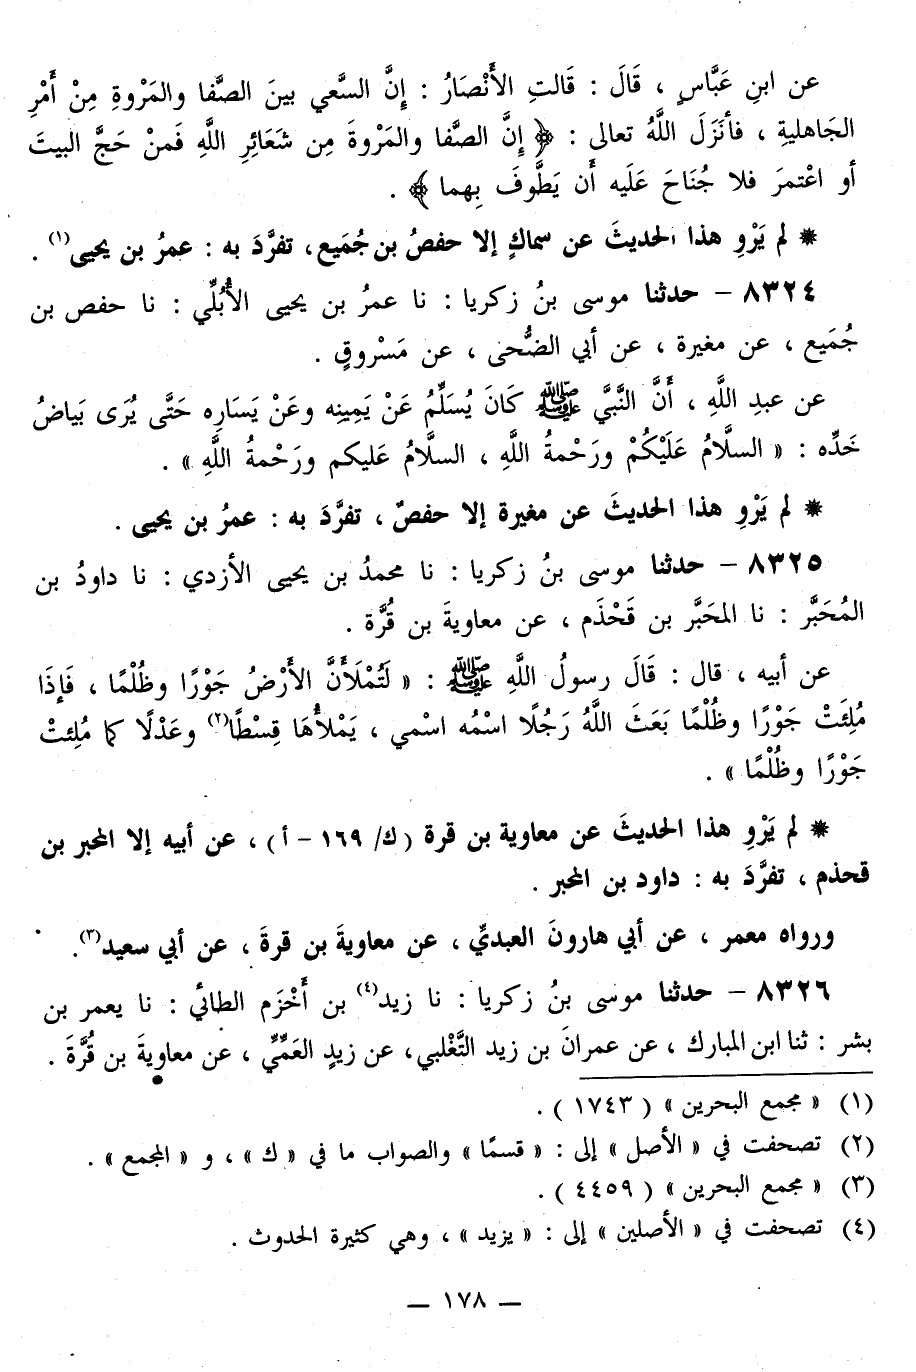 عن ابنِ عَبَّاسٍ ، قَالَ : قَالتِ الأَنْصَارُ : إِنَّ السَّعي بينَ الصَّفا والمَرْوةِ مِنْ أَمْرِ
الجَاهليةِ ، فأنَزَلَ اللَّهُ تعالى : ﴿ إِنَّ الصَّفا والمَرْوةَ مِن شَعَائِرِ اللَّهِ فَمنْ حَجَّ البيتَ
أو اعْتمرَ فلا جُنَاحَ عَلَيه أَن يَطَّوفَ بِهما ﴾ .
* لم يَرْوِ هذا الحديثَ عن سماكٍ إلا حفصُ بن جُمَيع، تفرَّدَ به : عمرُ بن يحيى(١) .
٨٣٢٤ - حدثنا موسى بنُ زكريا : نا عمرُ بن يحيى الأُبُلِّي : نا حفص بن
جُمَيع ، عن مغيرة ، عن أبي الضُّحى ، عن مَسْروقٍ .
عن عبدِ اللَّهِ ، أَنَّ النَّبيَّ ﷺ كَانَ يُسَلِّمُ عَنْ يَمِينِه وعَنْ يَسَارِه حَتَّى يُرَى بَياضُ
خَدِّه : « السلَّامُ عَلَيْكُمْ ورَحْمةُ اللَّهِ ، السلَّامُ عَليكم ورَحْمةُ اللَّهِ » .
* لم يَرْوِ هذا الحديثَ عن مغيرة إلا حفصٌ ، تفرَّدَ به : عمرُ بن يحيى .
٨٣٢٥ - حدثنا موسى بنُ زكريا : نا محمدُ بن يحيى الأزدي : نا داودُ بن
المُحَبَّر : نا المحَبَّر بن قَحْذَم ، عن معاويةَ بن قُرَّة .
عن أبيه ، قال : قَالَ رسولُ اللَّهِ ﷺ : « لَتُمْلَأَنَّ الأَرْضُ جَوْرًا وظُلْمًا ، فَإِذَا
مُلِئَتْ جَوْرًا وظُلْمًا بَعَثَ اللَّهُ رَجُلًا اسْمُه اسْمي ، يَمْلأُهَا قِسْطًا(٢) وعَدْلًا كما مُلِئتْ
جَوْرًا وظُلْمًا » .
* لم يَرْوِ هذا الحديثَ عن معاوية بن قرة ( ك/ ١٦٩ - أ ) ، عن أبيه إلا المحبر بن
قحذم ، تفرَّدَ به : داود بن المحبر .
ورواه معمر ، عن أبي هارونَ العبديِّ ، عن معاويةَ بن قرةَ ، عن أبي سعيد(٣) .
٨٣٢٦ - حدثنا موسى بنُ زكريا : نا زيد(٤) بن أَخْزَم الطائي : نا يعمر بن
بشر : ثنا ابن المبارك ، عن عمرانَ بن زيد التَّغْلبي، عن زيدٍ العَمِّيِّ ، عن معاويةَ بن قُرَّةَ .
(١) « مجمع البحرين » ( ١٧٤٣ ) .
(٢) تصحفت في « الأصل » إلى : « قسمًا » والصواب ما في « ك » ، و « المجمع » .
(٣) « مجمع البحرين » ( ٤٤٥٩ ) .
(٤) تصحفت في « الأصلين » إلى : « يزيد » ، وهي كثيرة الحدوث .
— ١٧٨ —